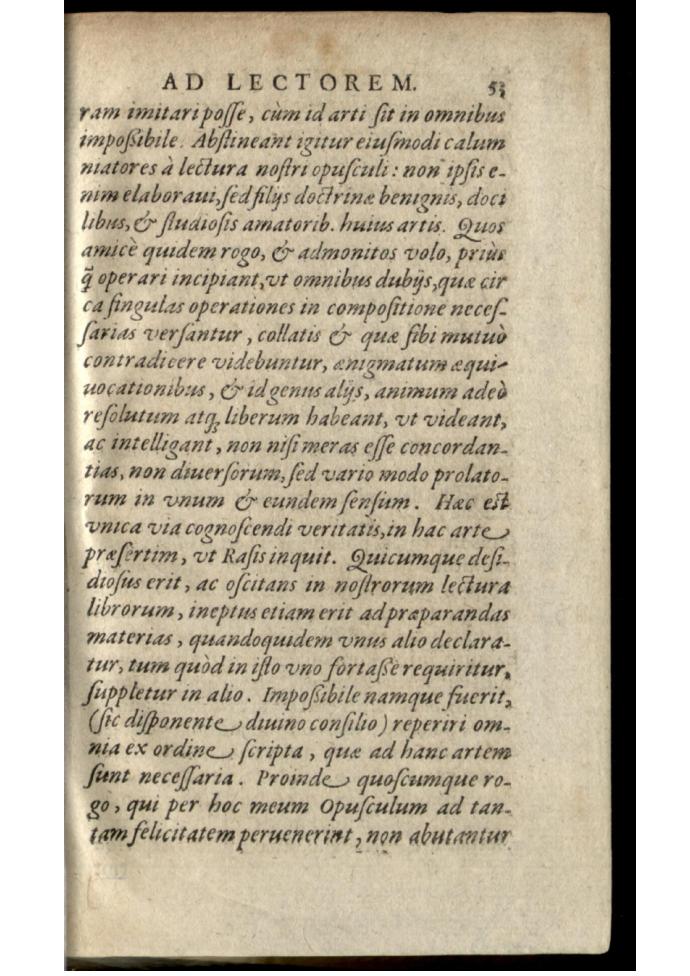 AD LECTOREM. 53
ram imitari posse, cùm id arti sit in omnibus
impoßibile. Abstineant igitur eiusmodi calum
niatores à lectura nostri opusculi: non ipsis e-
nim elaboraui, sed filijs doctrinæ benignis, doci
libus, & studiosis amatorib. huius artis. Quos
amicè quidem rogo, & admonitos volo, priùs
q̃ operari incipiant, vt omnibus dubijs, quæ cir
ca singulas operationes in compositione neces-
sarias versantur, collatis & quæ sibi mutuò
contradicere videbuntur, ænigmatum æqui-
uocationibus, & id genus alijs, animum adeò
resolutum atq; liberum habeant, vt videant,
ac intelligant, non nisi meras esse concordan-
tias, non diuersorum, sed vario modo prolato-
rum in vnum & eundem sensum. Hæc est
vnica via cognoscendi veritatis, in hac arte
præsertim, vt Rasis inquit. Quicumque desi-
diosus erit, ac oscitans in nostrorum lectura
librorum, ineptus etiam erit ad præparandas
materias, quandoquidem vnus alio declara-
tur, tum quòd in isto vno fortaßè requiritur,
suppletur in alio. Impoßibile namque fuerit,
(sic disponente diuino consilio) reperiri om-
nia ex ordine scripta, quæ ad hanc artem
sunt necessaria. Proinde quoscumque ro-
go, qui per hoc meum Opusculum ad tan-
tam felicitatem peruenerint, non abutantur